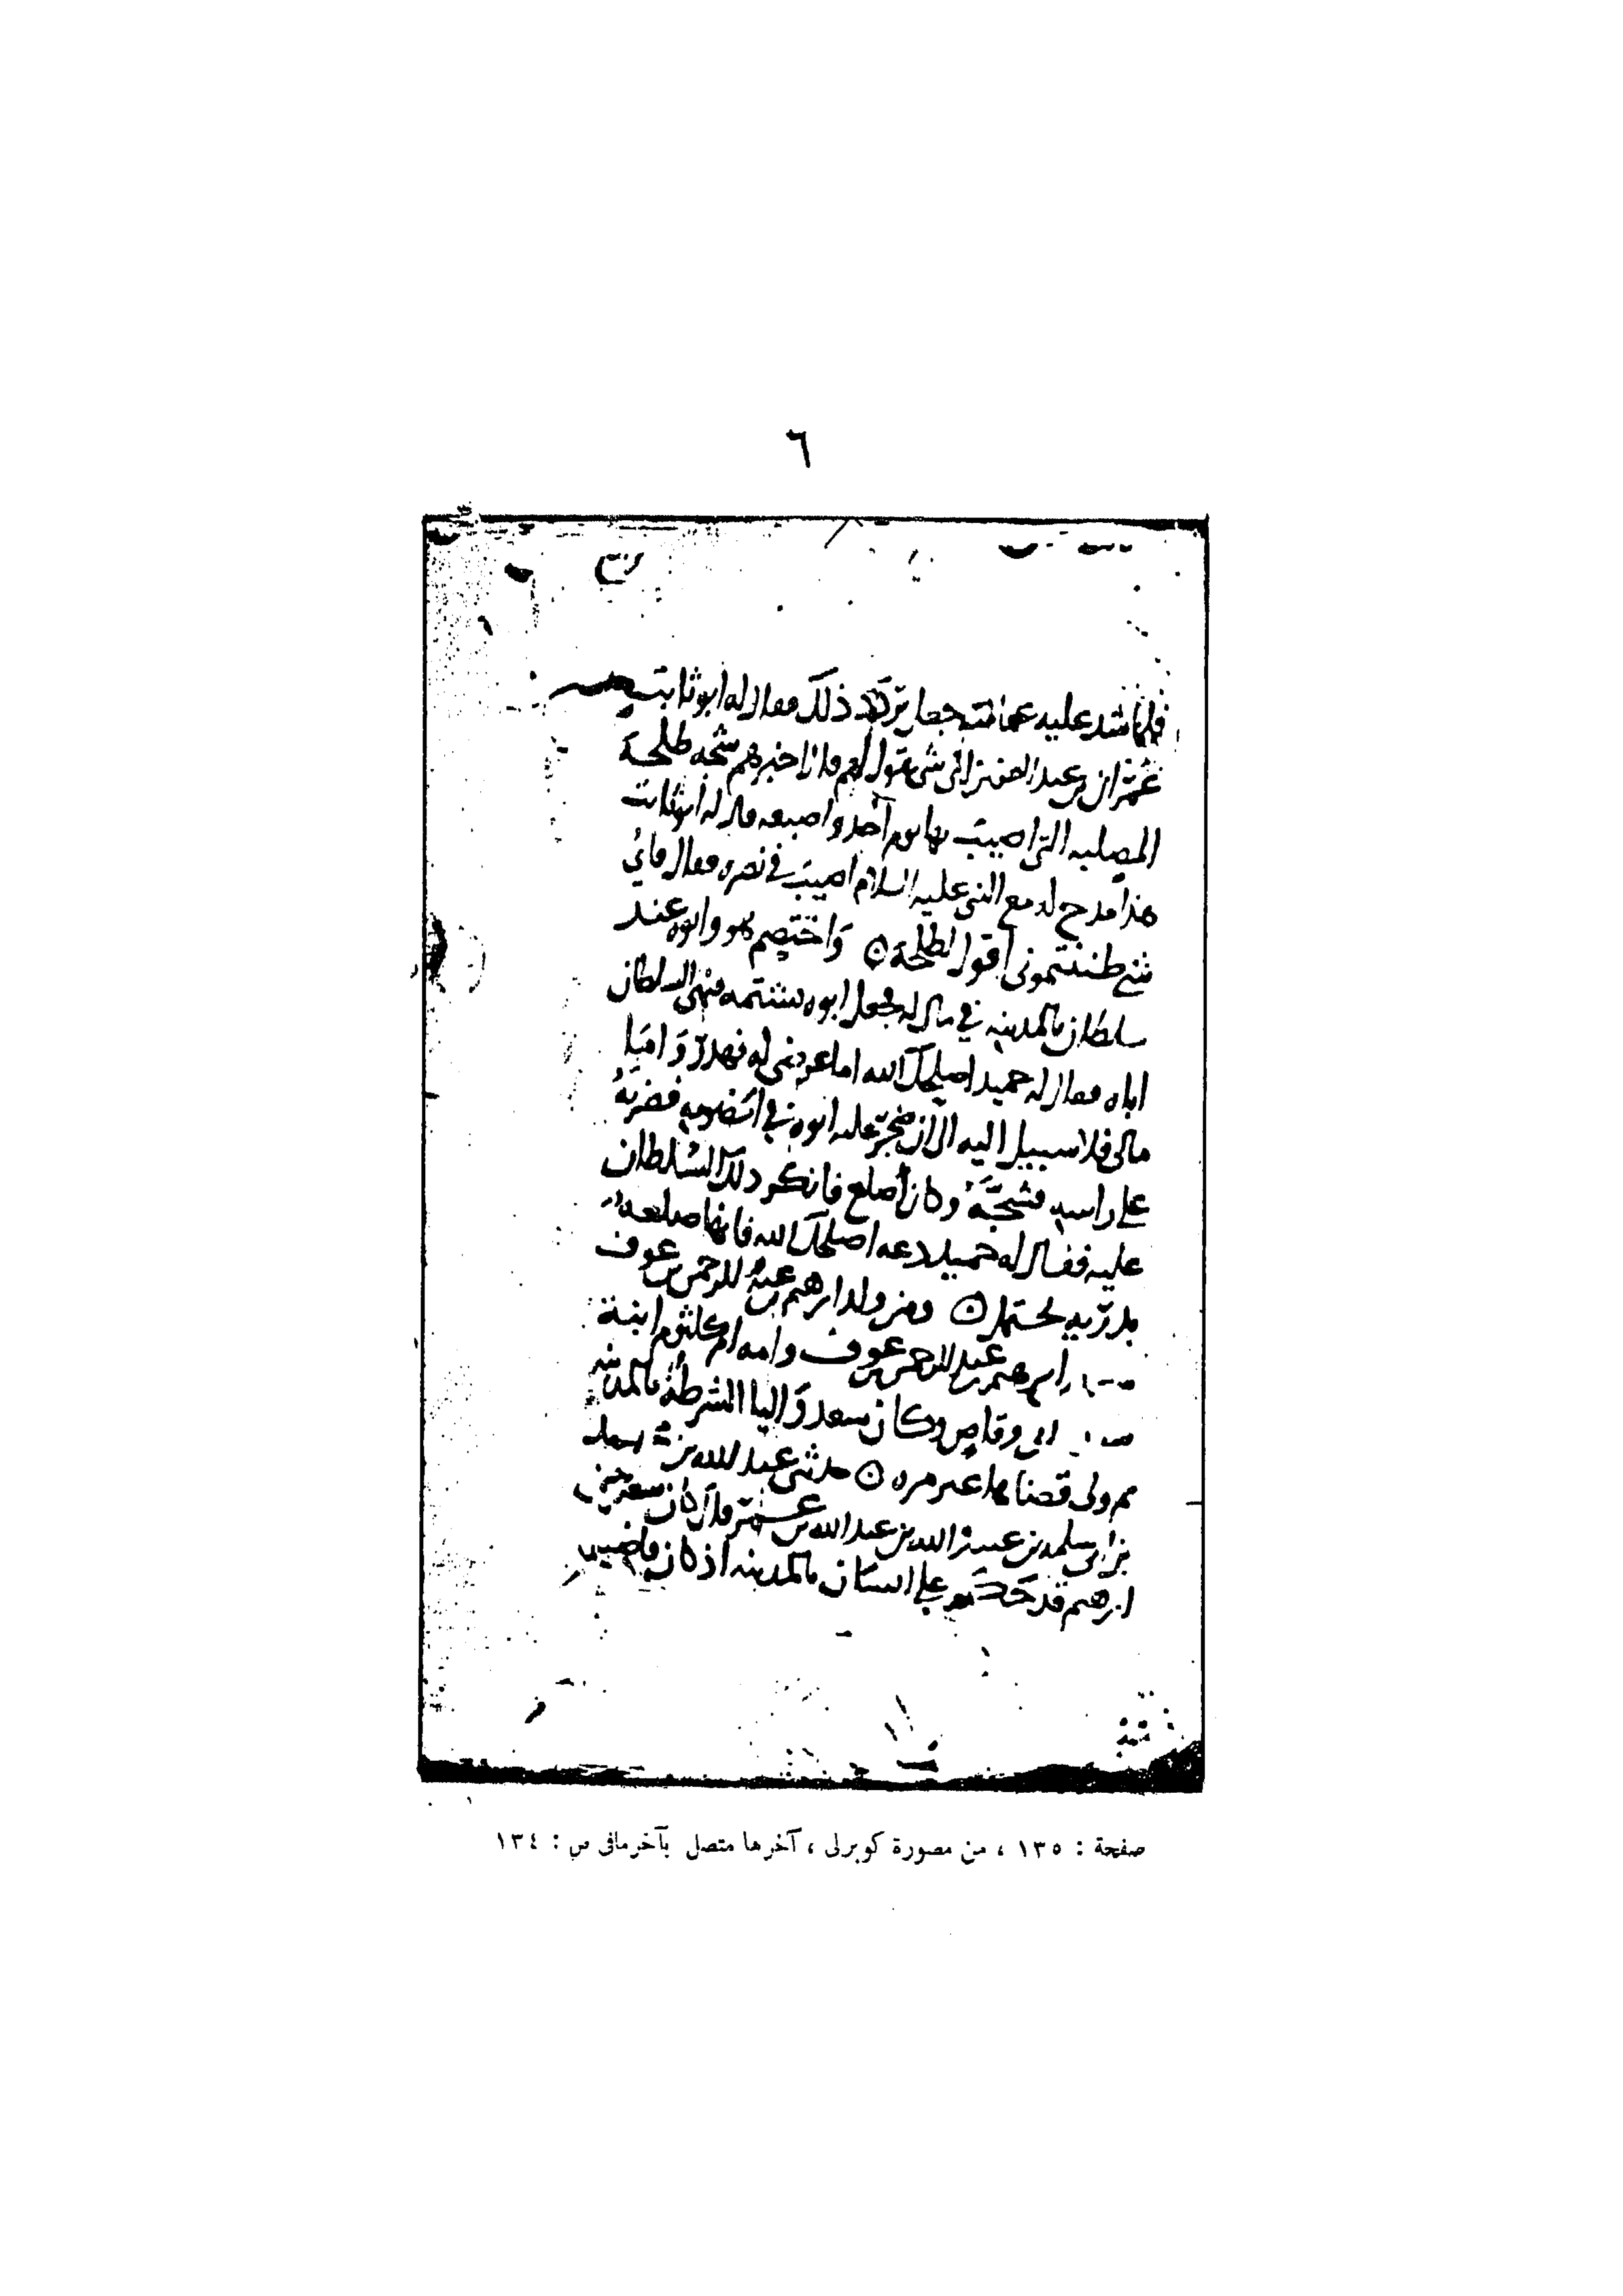 ٦
فلما شد عليه عمامته جعل يردد ذلك فقال له ابو ثابت
عمران بن عبد العزيز اى شى تقول لهم قال اخبرهم شجه طلحة
المصلبه التى اصيب بها يوم أحد واصبعه قال له ابو ثابت
هذا مدح له مع النبى عليه السلام اصيب فى نصره فقال فاى
شى اقول لطلحة ⊙ وَاختصم هو وابوه عند
سلطان بالمدينه فى مال له فجعل ابوه يشتمه فنهى السلطان
اباه فقال له حميد اصلحك الله اما عرضى له فهدر وَاما
مالى فلا سبيل اليه الا ان ضجر عليه ابوه فى فضربهُ
على راسه فشجّهُ وكان أصلع فانكر ذلك السلطان
عليه فقال له حميد دعه اصلحك الله فانها صلعه
بدريه تحتمل ⊙ ومن ولد ابرهيم بن عبد الرحمن بن عوف
ابرهيم بن عبد الرحمن بن عوف وامه ام كلثوم ابنة
ابى وقاص وكان سعد وَاليا الشرطة بالمدينه
ثم ولى قضاها غير مره ⊙ حدثنى عبد الله بن
بن ابى سلمه بن عبيد الله بن عبد الله بن عمر قال كان سعد بن
ابرهيم قد على انسان بالمدينه اذ كان قاضيا
صفحة : ١٣٥ ، من مصورة كوبرلى ، آخرها متصل بآخر مافى س : ١٣٤